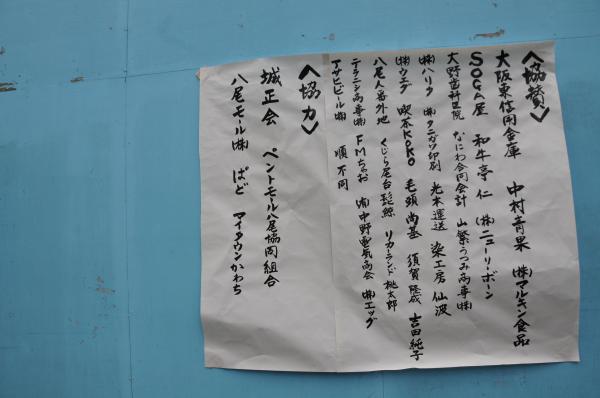 〈協賛〉
大阪東信用金庫 中村青果 ㈱マルキン食品
SOGA屋 和牛亭 仁 ㈱ニューリーボーン
大野歯科医院 なにわ合同会計 山繁うつみ商事㈱
㈱ハリタ ㈱タニガワ印刷 光本運送 染工房 仙波
㈱ウエグ 喫茶KOKO 毛頭尚基 須賀隆成 吉田純子
八尾人番外地 くじら尾台 髭鯨 リカーランド桃太郎
テラニシ商事㈱ FMちゃお ㈲中野電気商会 ㈱エッグ
アサヒビール㈱ 順不同
〈協力〉
城正会 ペントモール八尾協同組合
八尾モール㈱ ぱど マイタウンかわち